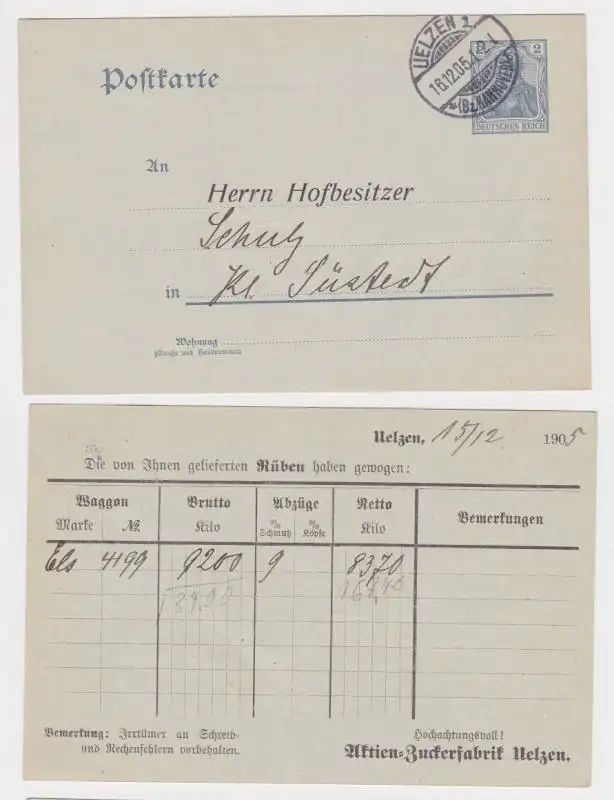 UELZEN 1
16.12.05.
*(Bz. HANNOVER)
2
DEUTSCHES REICH
Postkarte
An
Herrn Hofbesitzer
Schulz
in Kl. Süstedt
Wohnung
(Straße und Hausnummer)
Uelzen, 15/12 1905
Die von Ihnen gelieferten Rüben haben gewogen:
Waggon Brutto Abzüge Netto Bemerkungen
Marke № Kilo % Schmutz % Köpfe Kilo
Els 4199 9200 9 8370
Bemerkung: Irrtümer an Schreib- und Rechenfehlern vorbehalten.
Hochachtungsvoll!
Aktien-Zuckerfabrik Uelzen.